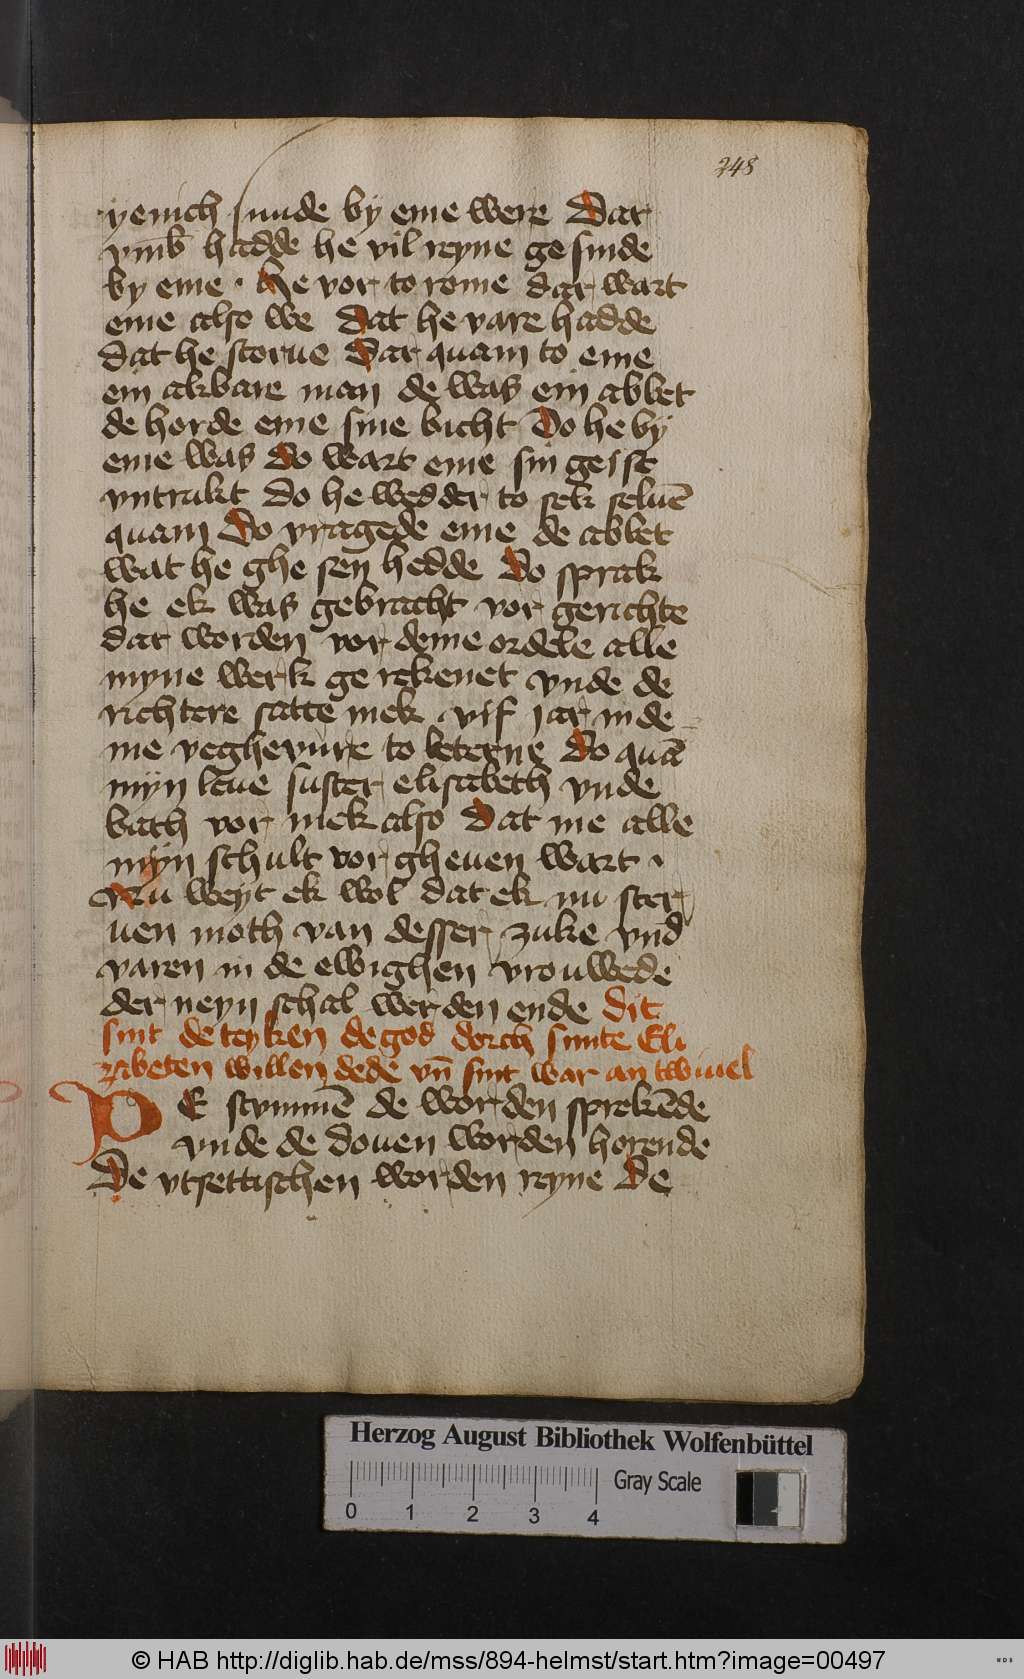 248
yenich sunde by eme were Dar
vmb̄ hadde he vil reyne ge sinde
by eme · he vor to rome dar wart
eme also we dat he vare hadde
dat he storue Dar quam to eme
ein akbare man de was ein abbet
de horde eme sine bicht Do he by
eme was do wart eme sin geist
vntrukt do he wedder to sek seluē
quam Do vragede eme de abbet
wat he ghe sen hedde Do sprak
he ek was gebracht vor gerichte
dar worden vor deme ordele alle
myne werk ge rekenet vnde de
richtere satte mek vif jar in de
me veghevure to beterne do quā
myn leue suster elisabeth vnde
bath vor mek also dat me alle
myn schult vor gheuen wart ·
Nu weyt ek wol dat ek nu ster
uen moth van desser zuke vnd
varen in de ewighen vrouwede
der neyn schal werden ende Dit
sint de teyken de god dorch sunte Eli
zabeten willen dede vn̄ sint war an twiuel
DE stummē de worden sprekēde
vnde de douen worden horende
De vtsettischen worden reyne De
Herzog August Bibliothek Wolfenbüttel
Gray Scale
0 1 2 3 4
© HAB http://diglib.hab.de/mss/894-helmst/start.htm?image=00497